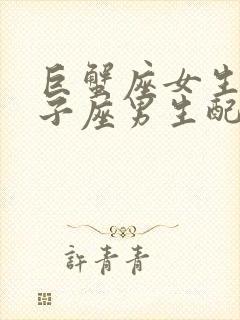 巨蟹座女生
子座男生配
許青青